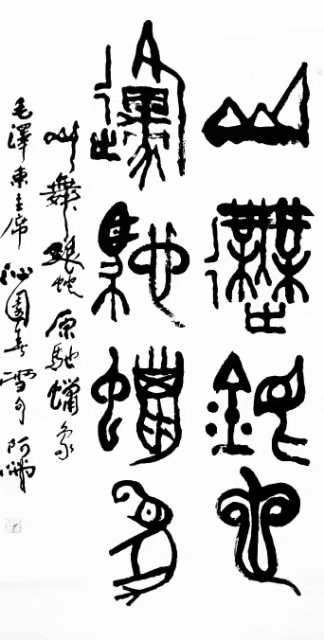 山舞銀蛇
原馳蠟象
山舞銀蛇原馳蠟象
毛澤東主席沁園春雪句阿